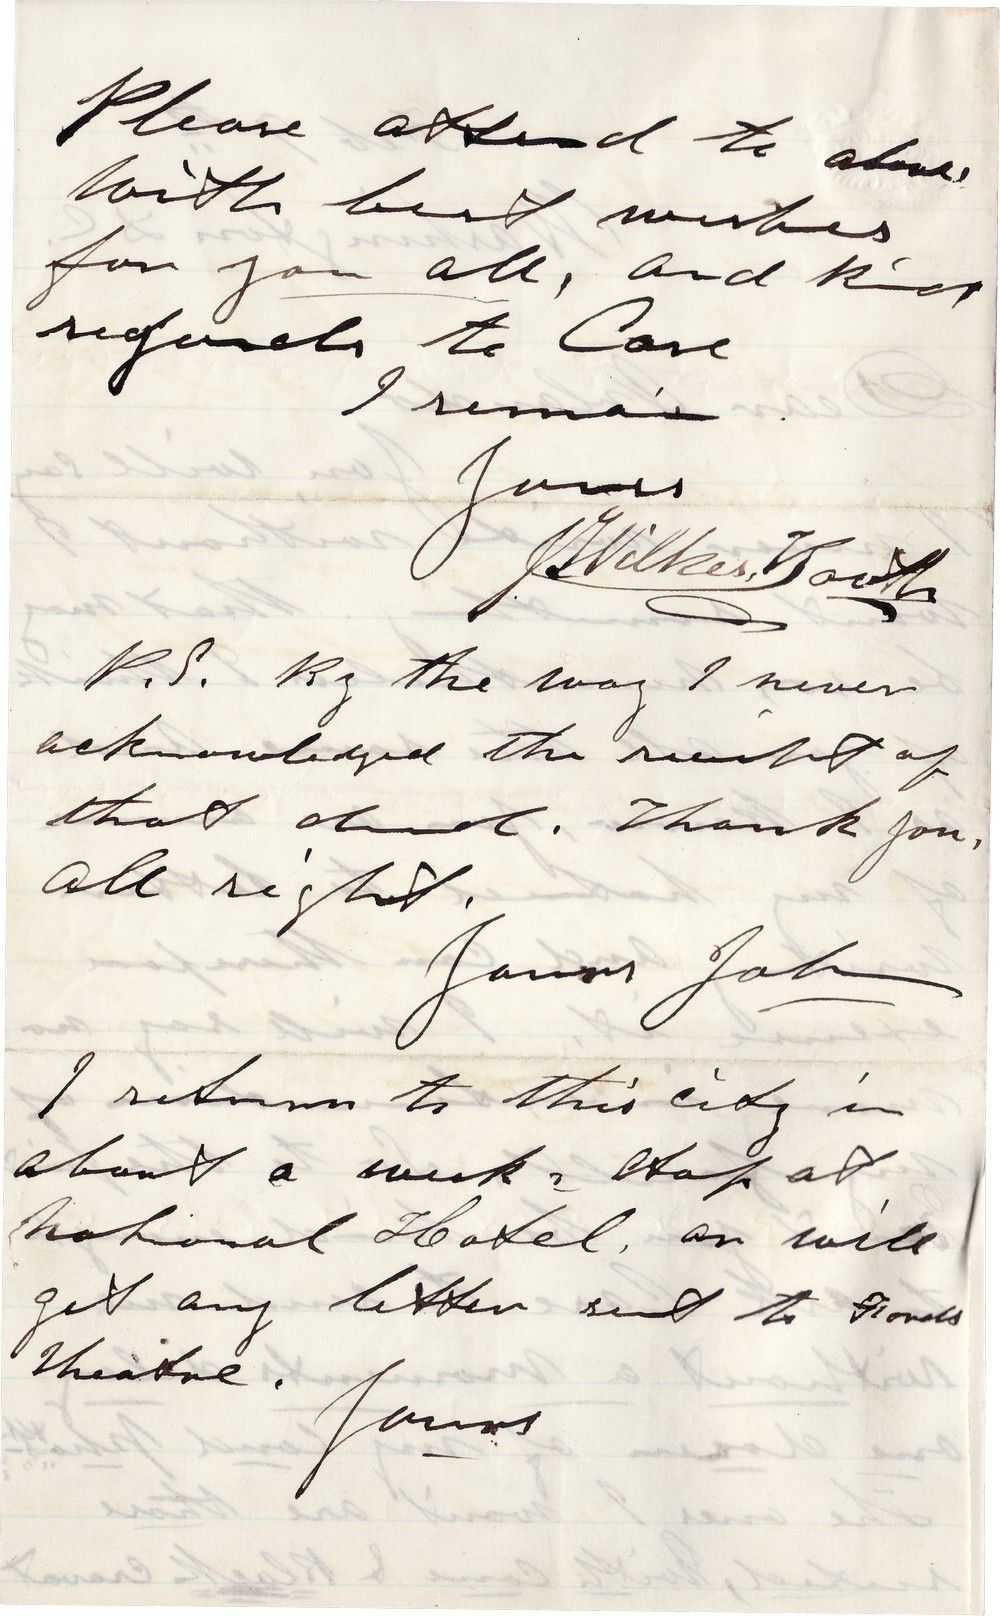 Please attend to above.
With best wishes
for you all, and kind
regards to Case
I remain
Yours
J. Wilkes Booth
P.S. By the way I never
acknowledged the receipt of
that deed. Thank you,
all right.
Yours John
I return to this city in
about a week. Stop at
National Hotel. or will
get any letter sent to Fords
Theatre.
Yours